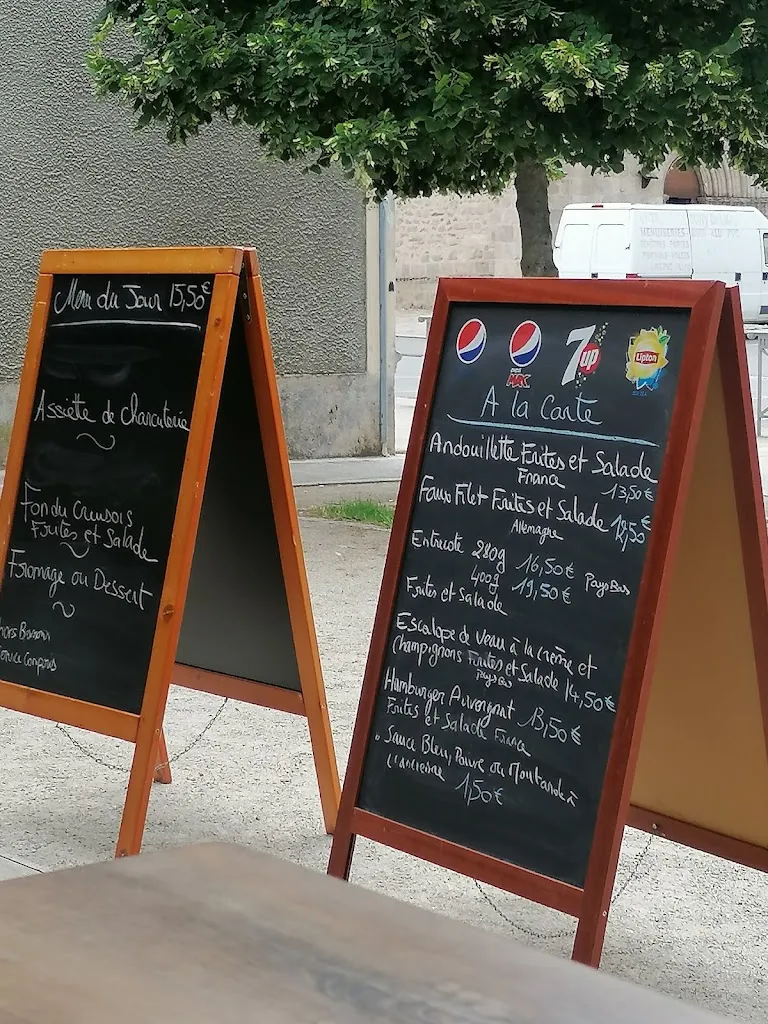 Menu du Jour 15,50€
Assiette de Charcuterie
Fondu Creusois
Frites et Salade
Fromage ou Dessert
hors Boisson
Service Compris
pepsi MAX
7up
Lipton
ICE TEA
A la Carte
Andouillette Frites et Salade
France 13,50€
Faux Filet Frites et Salade
Allemagne
Entrecote 280g 16,50€ Pays Bas
400g 19,50€
Frites et Salade
Escalope de Veau à la crème et
Champignons Frites et Salade 14,50€
Pays Bas
Hamburger Auvergnat 13,50€
Frites et Salade France
Sauce Bleu, Poivre ou Moutarde à
l'ancienne 1,50€
MENUISERIES